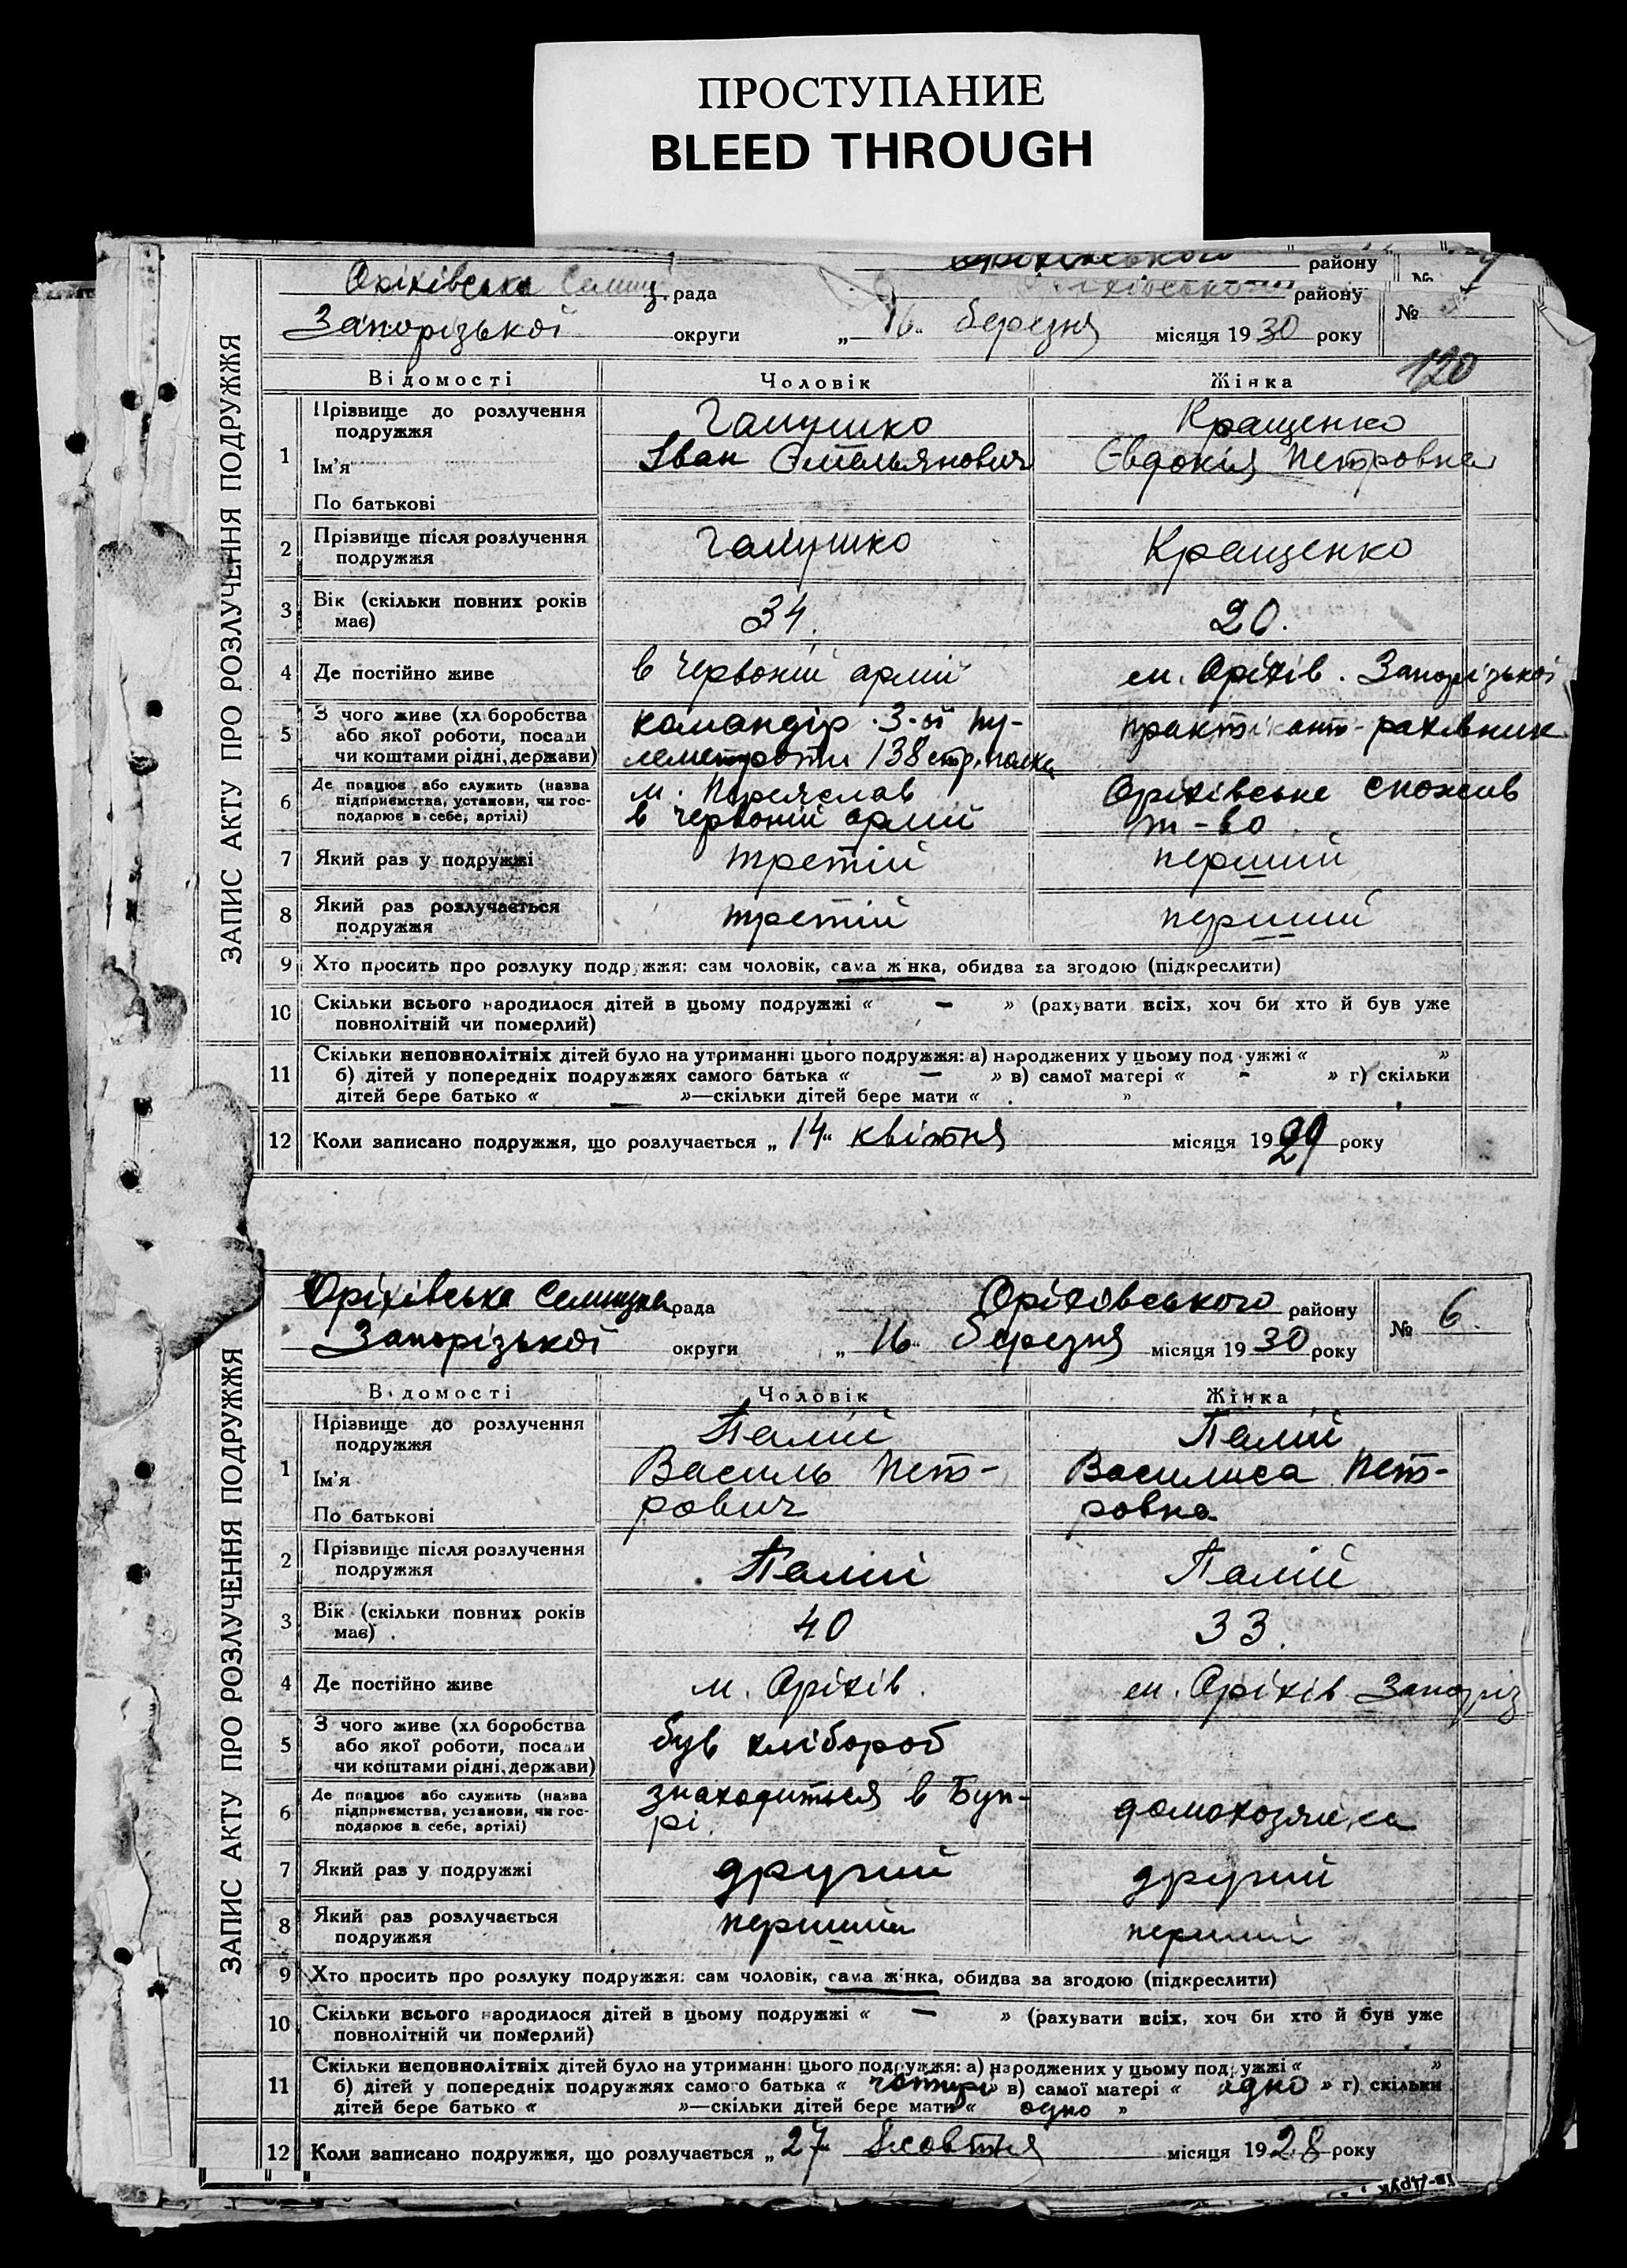 ПРОСТУПАНИЕ
BLEED THROUGH
району
№ 7
Оріхівська Селищ. рада району
Запорізької округи „16“ березня місяця 1930 року №
120
ЗАПИС АКТУ ПРО РОЗЛУЧЕННЯ ПОДРУЖЖЯ
Відомості Чоловік Жінка
1 Прізвище до розлучення подружжя Галушко Кращенко
Ім'я Іван Омельянович Євдокія Петровна
По батькові
2 Прізвище після розлучення подружжя Галушко Кращенко
3 Вік (скільки повних років має) 34. 20.
4 Де постійно живе в Червоній армії м. Оріхів. Запорізької
5 З чого живе (хліборобства або якої роботи, посади чи коштами рідні, держави) командір 3-ої пу-
леметроти 138 стр. полка практікант-рахівник
6 Де працює або служить (назва підприємства, установи, чи господарює в себе, артілі) м. Переяслав
в Червоній армії Оріхівське спожив
т-во.
7 Який раз у подружжі третій перший
8 Який раз розлучається подружжя третій перший
9 Хто просить про розлуку подружжя: сам чоловік, сама жінка, обидва за згодою (підкреслити)
10 Скільки всього народилося дітей в цьому подружжі « — » (рахувати всіх, хоч би хто й був уже
повнолітній чи померлий)
11 Скільки неповнолітніх дітей було на утриманні цього подружжя: а) народжених у цьому подружжі « »
б) дітей у попередніх подружжях самого батька « — » в) самої матері « - » г) скільки
дітей бере батько « — »—скільки дітей бере мати « »
12 Коли записано подружжя, що розлучається „14“ квітня місяця 1929 року
Оріхівська Селищна рада Оріхівського району
Запорізької округи „16“ березня місяця 1930 року № 6.
ЗАПИС АКТУ ПРО РОЗЛУЧЕННЯ ПОДРУЖЖЯ
Відомості Чоловік Жінка
1 Прізвище до розлучення подружжя Палій Палій
Ім'я Василь Пет- Василиса Пет-
По батькові рович ровна
2 Прізвище після розлучення подружжя Палій Палій
3 Вік (скільки повних років має) 40 33.
4 Де постійно живе м. Оріхів. м. Оріхів Запоріз
5 З чого живе (хліборобства або якої роботи, посади чи коштами рідні, держави) був хлібороб
6 Де працює або служить (назва підприємства, установи, чи господарює в себе, артілі) знаходиться в Буп-
рі. домохозяйка
7 Який раз у подружжі другий другий
8 Який раз розлучається подружжя перший перший
9 Хто просить про розлуку подружжя: сам чоловік, сама жінка, обидва за згодою (підкреслити)
10 Скільки всього народилося дітей в цьому подружжі « — » (рахувати всіх, хоч би хто й був уже
повнолітній чи померлий)
11 Скільки неповнолітніх дітей було на утриманні цього подружжя: а) народжених у цьому подружжі « »
б) дітей у попередніх подружжях самого батька « чотири » в) самої матері « одно » г) скільки
дітей бере батько « »—скільки дітей бере мати « одно »
12 Коли записано подружжя, що розлучається „27“ жовтня місяця 1928 року